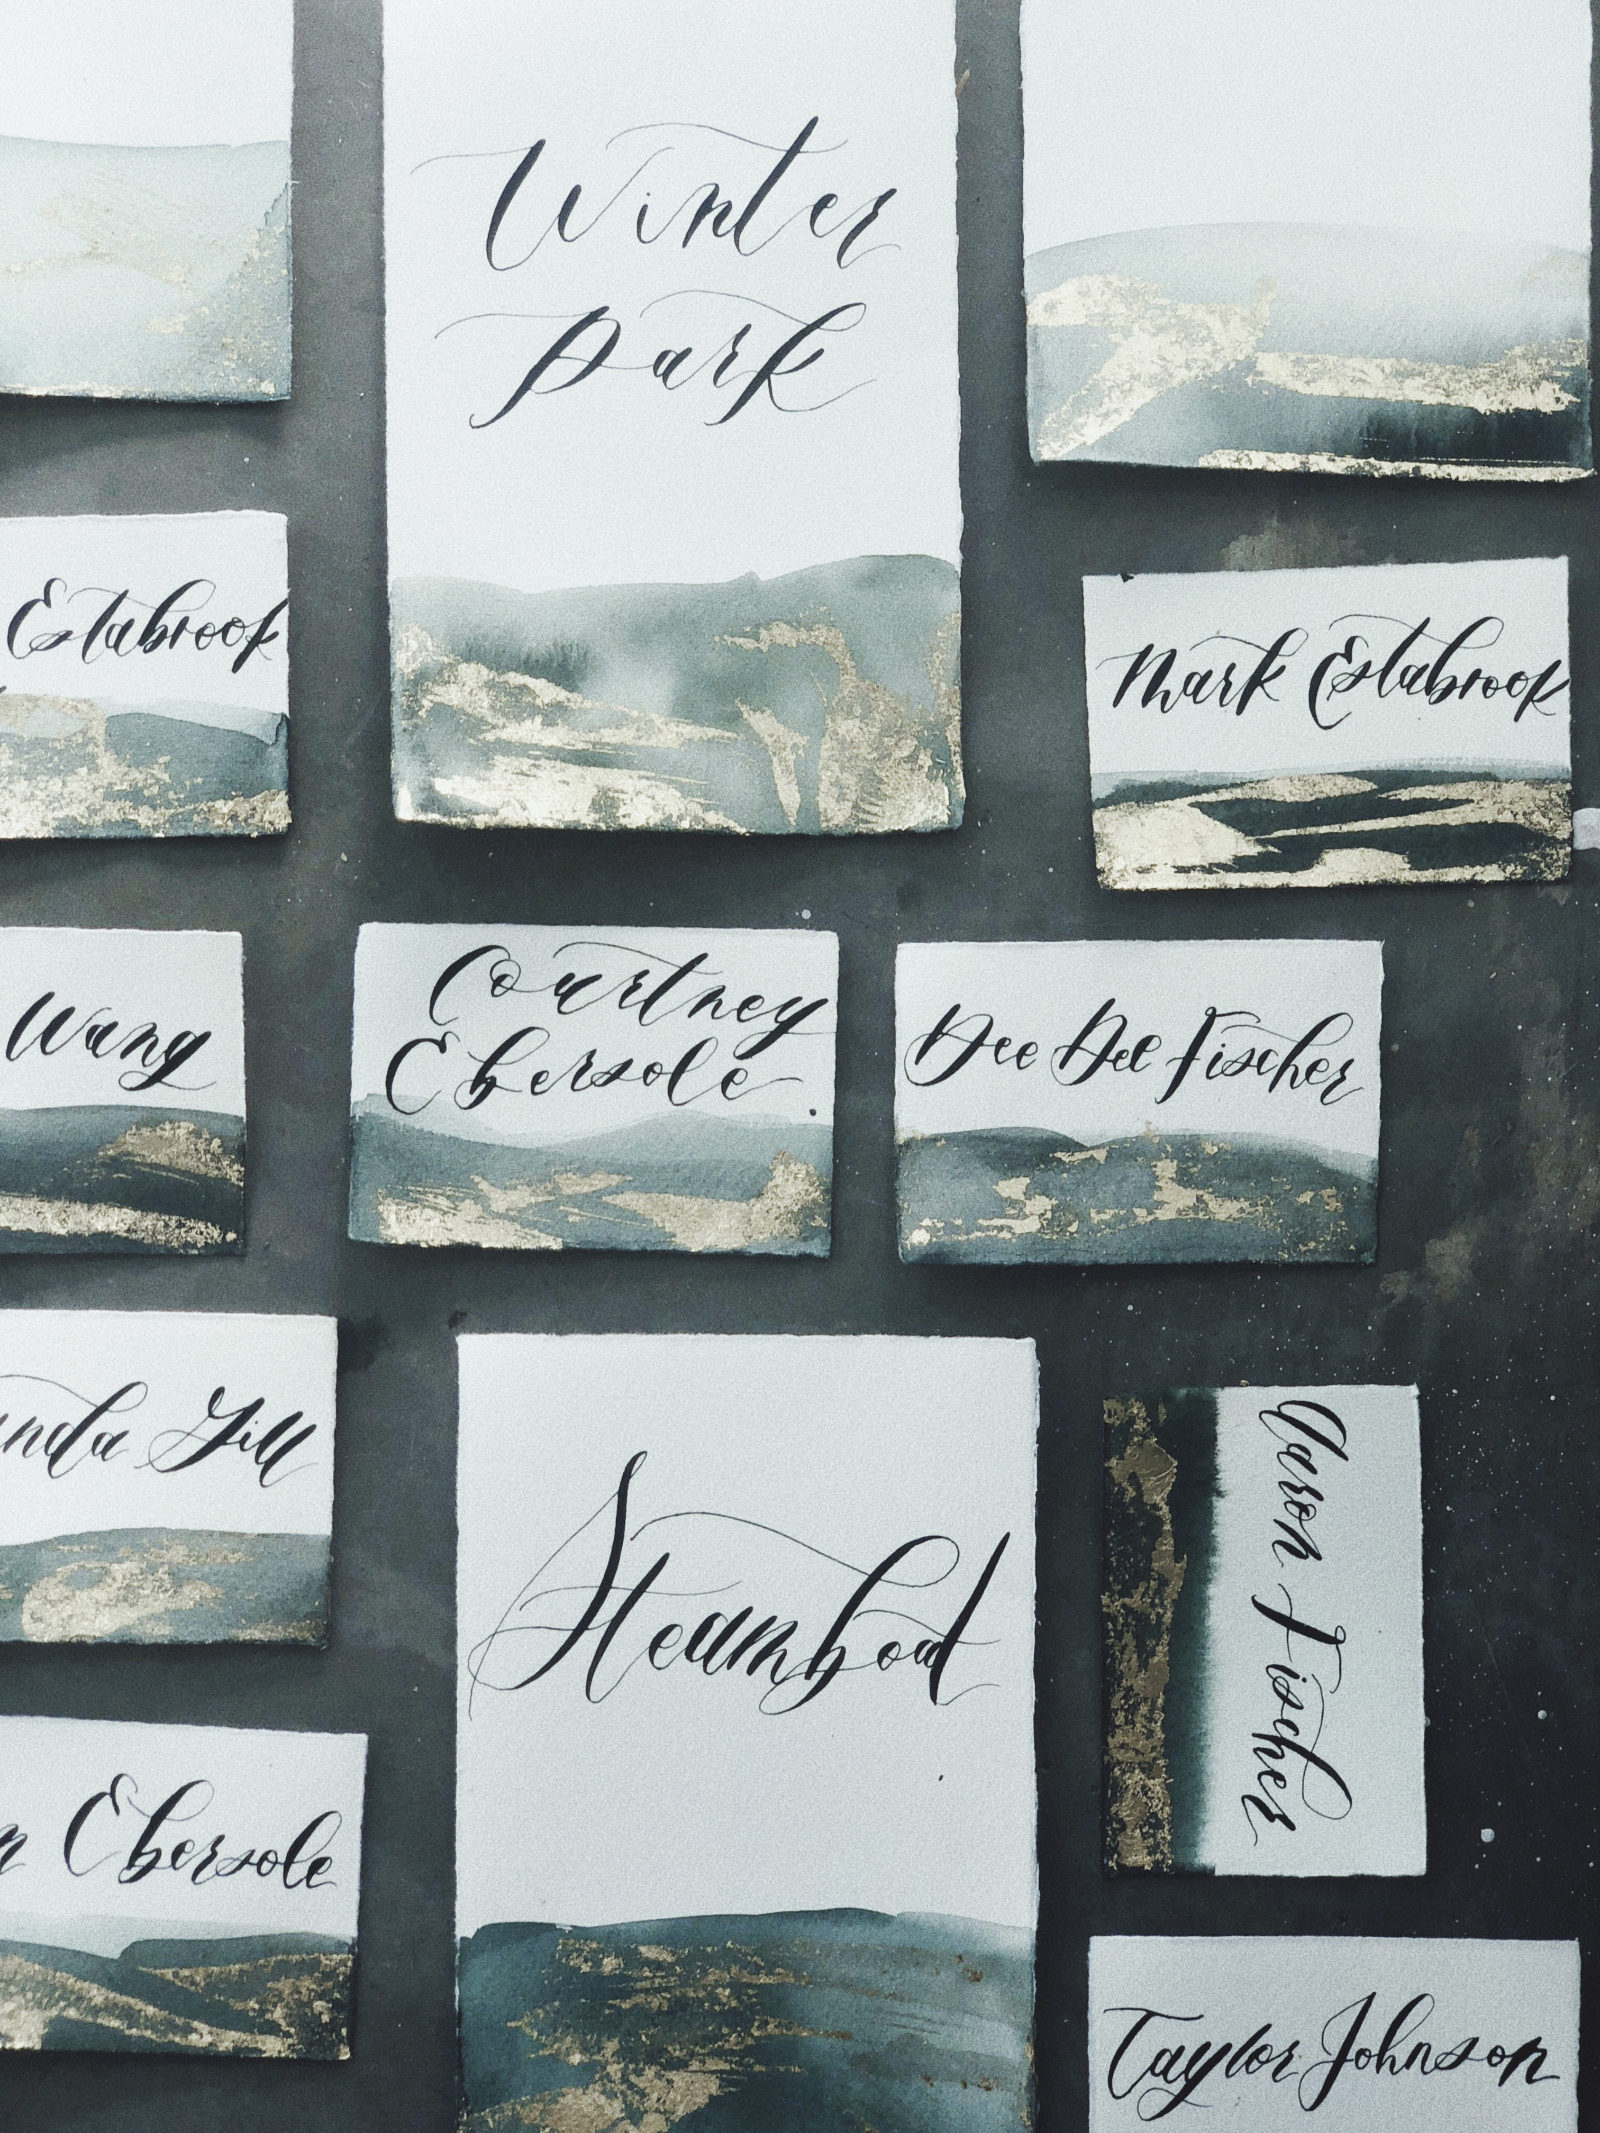 Winter
Park
Estabrook
Mark Estabrook
Wang
Courtney
Ebersole
Dee Dee Fischer
Gill
Steamboat
Aaron Fischer
Ebersole
Taylor Johnson